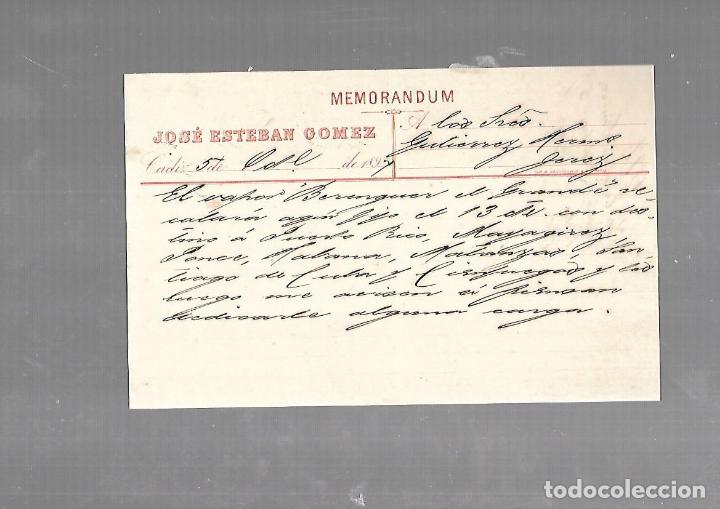 MEMORANDUM
JOSÉ ESTEBAN GOMEZ
Cádiz 5 de de 189
A los Sres.
Gutierrez Hermos.
Jerez
El vapor "Berenguer el Grande" se
calara aqui fijo el 13 con des-
tino á Puerto Rico, Mayagüez,
Ponce, Habana, Matanzas, San-
tiago de Cuba y Cienfuegos y les
ruego me avisen si piensan
dedicarle alguna carga.
todocoleccion.net